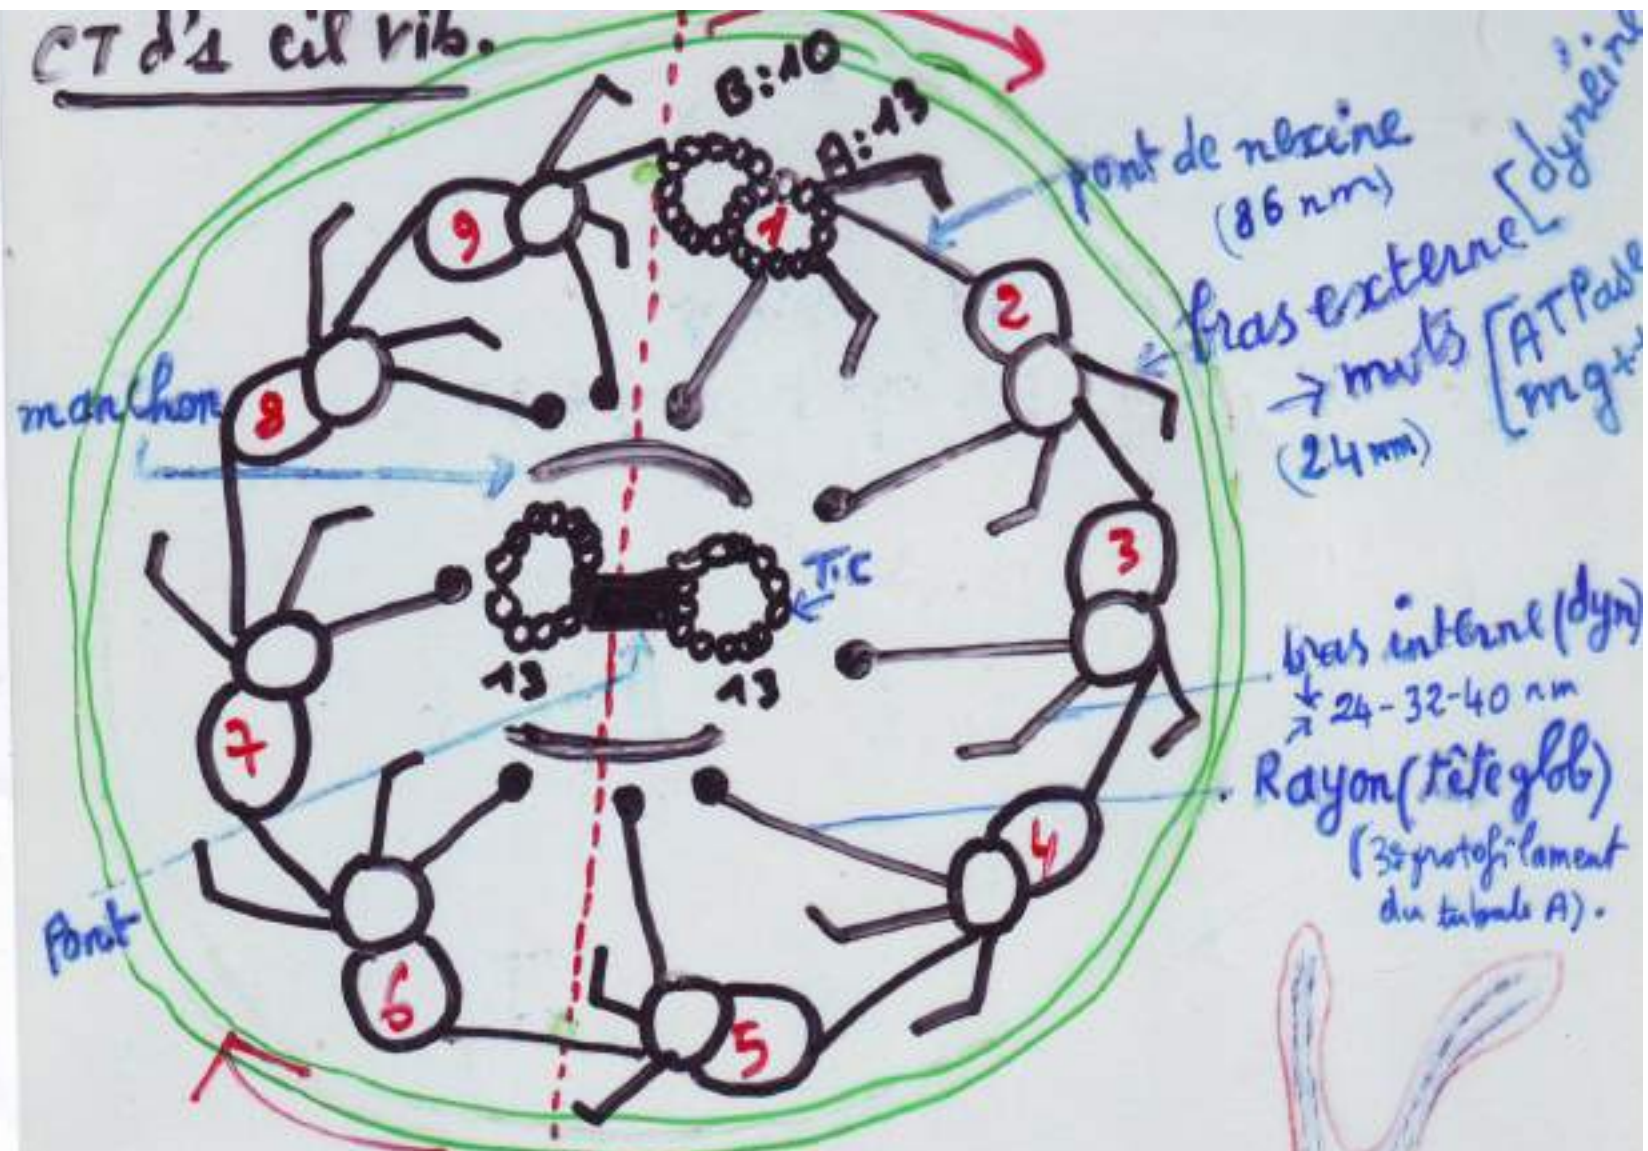 CT d'1 cil vib.
B:10
A:13
pont de nexine
(86 nm)
bras externe [dynéine
→ mvts [ATPase
mg++
(24 nm)
manchon
TiC
13
13
bras interne (dyn)
24-32-40 nm
Rayon (tête glob)
(3è protofilament
du tubule A).
Pont
1
2
3
4
5
6
7
8
9